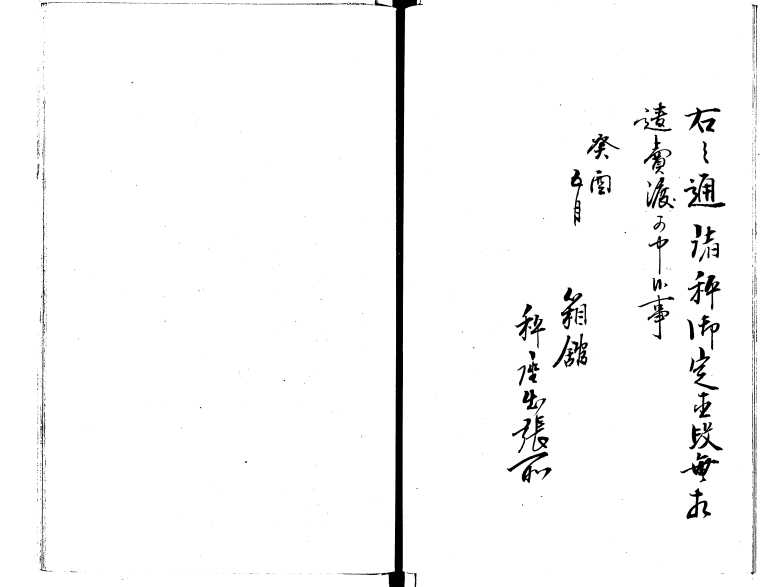 右之通諸秤御定直段無相
違賣渡可申候事
癸酉
五月
箱館
秤座出張所